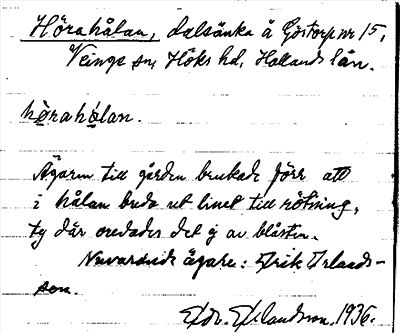 Hörahålan, dalsänka å Göstorp nr 15,
Veinge sn, Höks hd, Hallands län.
hörahólan.
Ägaren till gården brukade förr att
i hålan breda ut linet till rötning,
ty där oredades det ej av blåsten.
Nuvarande ägare: Erik Erlands-
son.
Edv. Erlandsson. 1936.